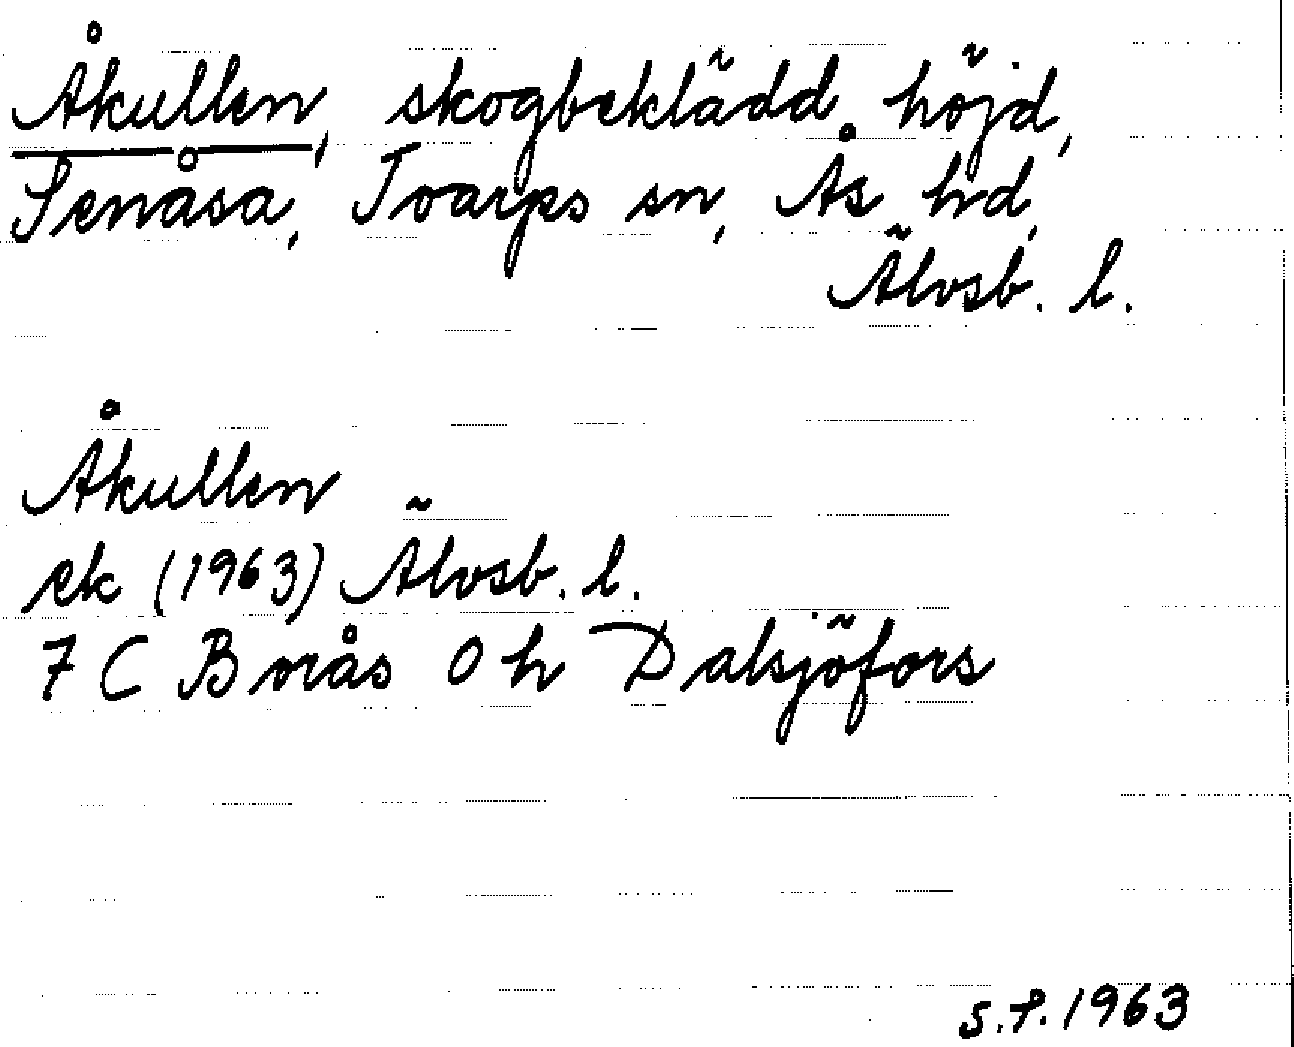 Åkullen, skogbeklädd höjd,
Senåsa, Toarps sn, Ås hd,
Älvsb. l.
Åkullen
ek (1963) Älvsb. l.
7 C Borås 0 h Dalsjöfors
S.F. 1963